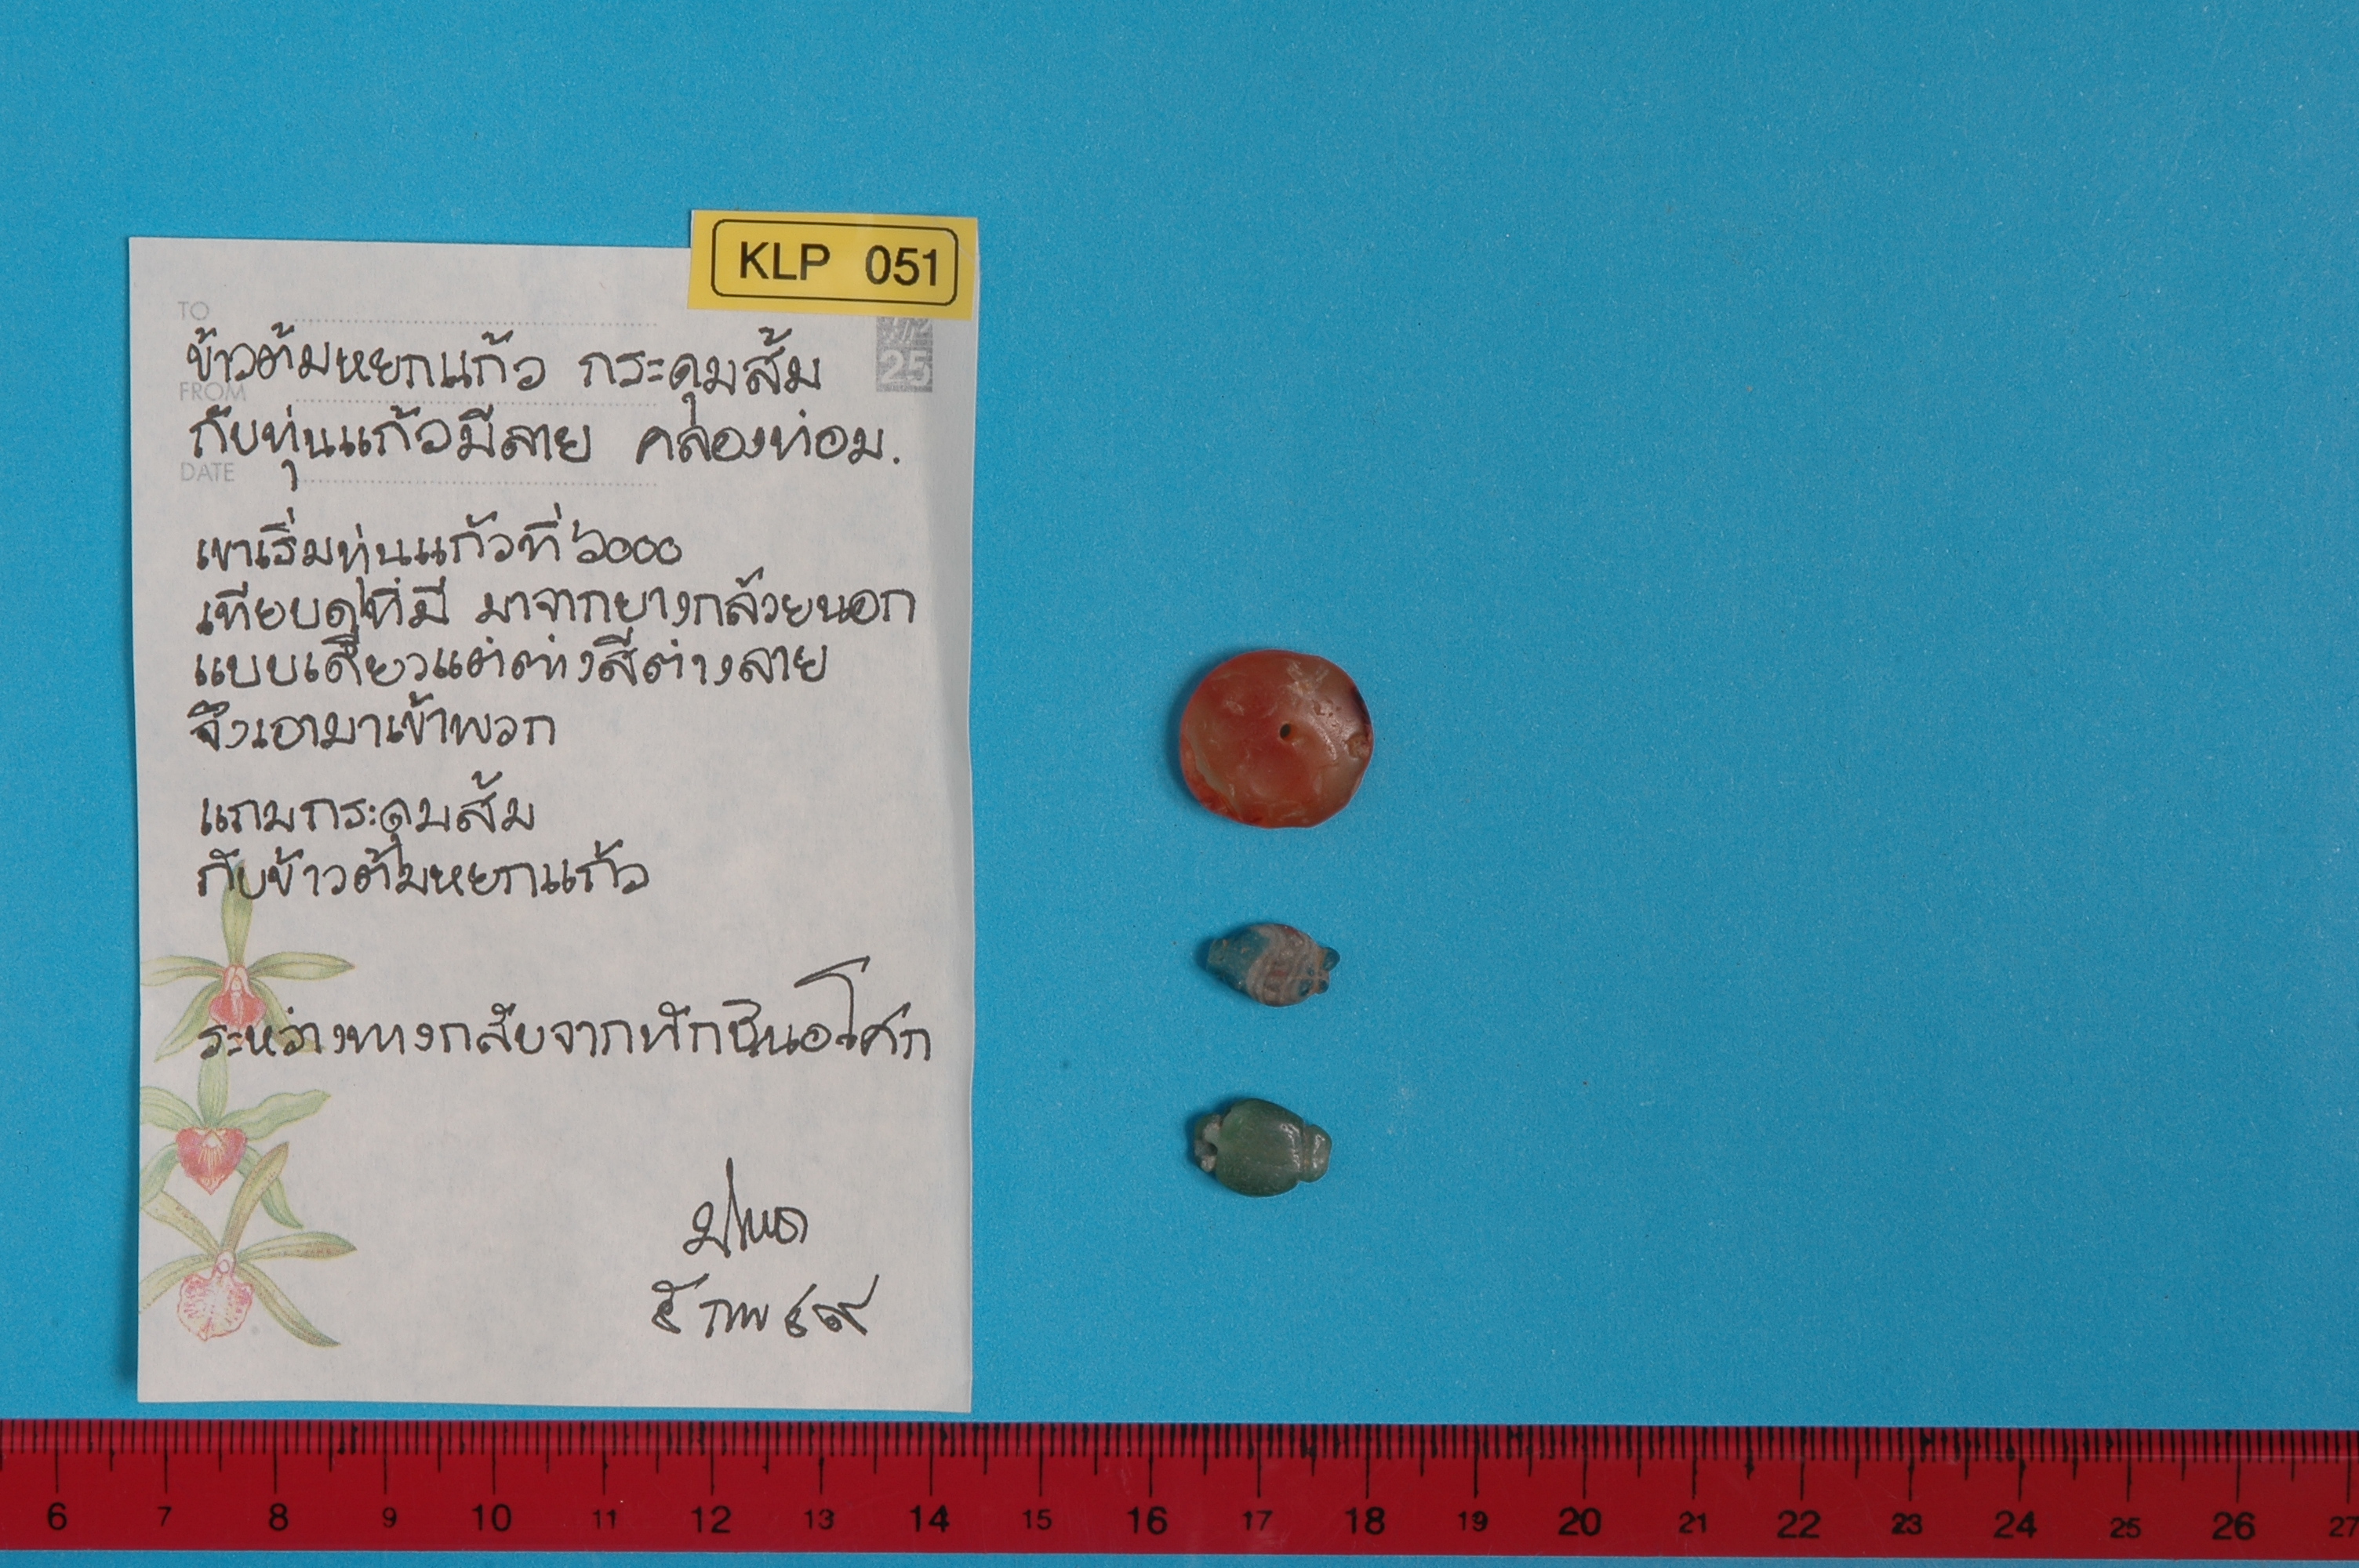 KLP 051
TO
25
ข้าวต้มหยกแก้ว กระดุมส้ม
FROM
กับทุ่นแก้วมีลาย คลองท่อม.
DATE
เขาเริ่มทุ่นแก้วที่ ๖๐๐๐
เทียบดูที่มี มาจากยางกล้วยนอก
แบบเดียวแต่ต่างสีต่างลาย
จึงเอามาเข้าพวก
แถมกระดุมส้ม
กับข้าวต้มหยกแก้ว
ระหว่างทางกลับจากทักษิณอโศก
๕ กพ ๔๙
6 7 8 9 10 11 12 13 14 15 16 17 18 19 20 21 22 23 24 25 26 27